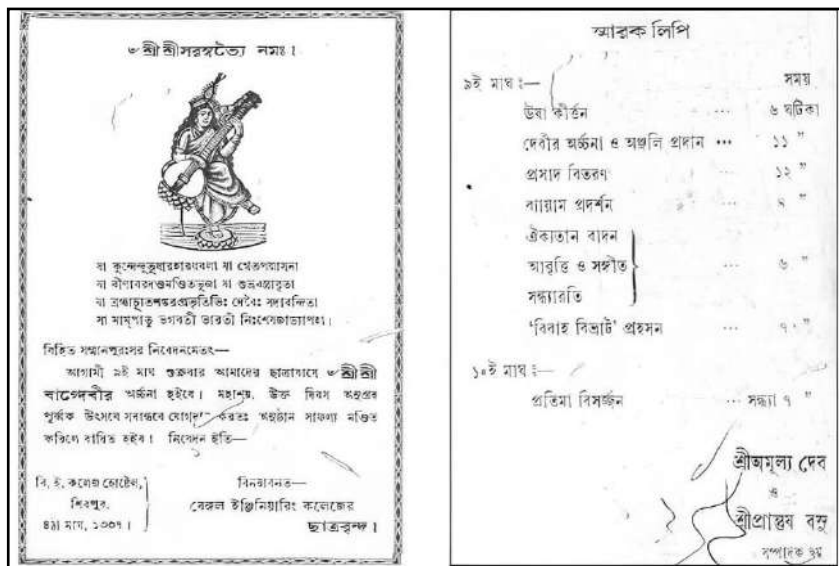 ৺শ্রীশ্রীসরস্বত্যৈ নমঃ।
যা কুন্দেন্দুতুষারহারধবলা যা শ্বেতপদ্মাসনা
যা বীণাবরদণ্ডমণ্ডিতভুজা যা শুভ্রবস্ত্রাবৃতা
যা ব্রহ্মাচ্যুতশঙ্করপ্রভৃতিভিঃ দেবৈঃ সদাবন্দিতা
সা মাম্পাতু ভগবতী ভারতী নিঃশেষজাড্যাপহা।
বিহিত সম্মানপুরঃসর নিবেদনমেতৎ—
আগামী ৯ই মাঘ শুক্রবার আমাদের ছাত্রাবাসে ৺শ্রীশ্রী
বাগ্দেবীর অর্চ্চনা হইবে। মহাশয়, উক্ত দিবস অনুগ্রহ
পূর্ব্বক উৎসবে সবান্ধবে যোগদান করতঃ অনুষ্ঠান সাফল্য মণ্ডিত
করিলে বাধিত হইব। নিবেদন ইতি—
বি, ই, কলেজ হোষ্টেল,
শিবপুর,
৪ঠা মাঘ, ১৩৩৭।
বিনয়াবনত—
বেঙ্গল ইঞ্জিনিয়ারিং কলেজের
ছাত্রবৃন্দ।
স্মারক লিপি
৯ই মাঘ ঃ— সময়
উষা কীর্ত্তন ... ৬ ঘটিকা
দেবীর অর্চ্চনা ও অঞ্জলি প্রদান ... ১১ "
প্রসাদ বিতরণ ১২ "
ব্যায়াম প্রদর্শন ... ৪ "
ঐক্যতান বাদন
আবৃত্তি ও সঙ্গীত ... ৬ "
সন্ধ্যারতি
'বিবাহ বিভ্রাট' প্রহসন ... "
১০ই মাঘ ঃ—
প্রতিমা বিসর্জ্জন ... সন্ধ্যা ৭ "
শ্রীঅমূল্য দেব
ও
বসু
সম্পাদক দ্বয়